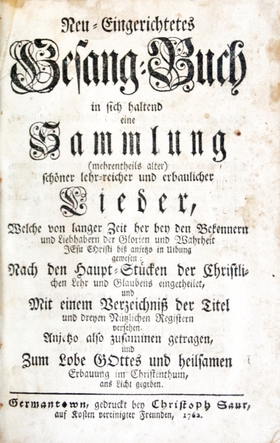 Neu-Eingerichtetes
Gesang-Buch
in sich haltend
eine
Sammlung
(mehrentheils alter)
schöner lehr-reicher und erbaulicher
Lieder,
Welche von langer Zeit her bey den Bekennern
und Liebhabern der Glorien und Wahrheit
JEsu Christi biß anjetzo in Uibung
gewesen:
Nach den Haupt-Stücken der Christli-
chen Lehr und Glaubens eingetheilet,
und
Mit einem Verzeichniß der Titel
und dreyen Nützlichen Registern
versehen.
Anjetzo also zusammen getragen,
und
Zum Lobe GOttes und heilsamen
Erbauung im Christenthum,
ans Licht gegeben.
Germantown, gedruckt bey Christoph Saur,
auf Kosten vereinigter Freunden, 1762.